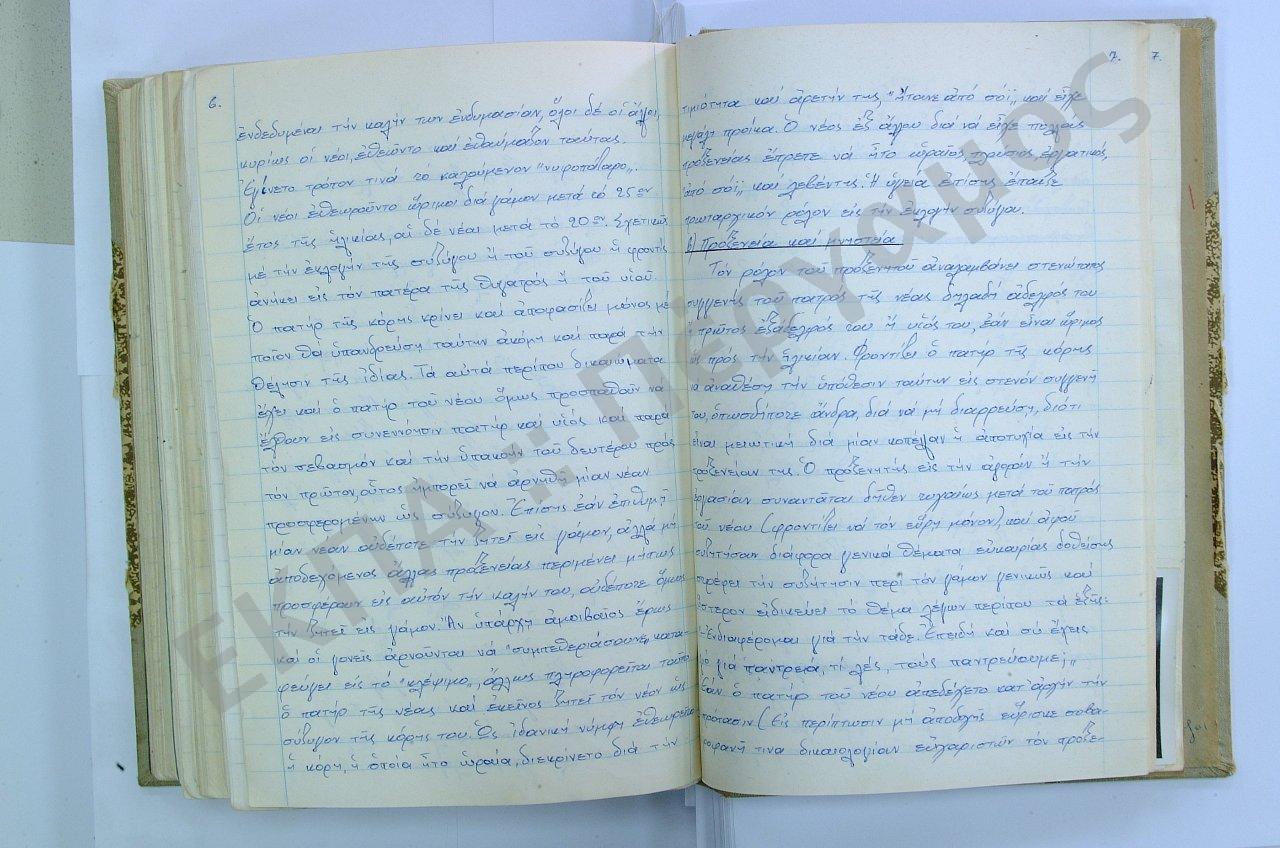 6.
ἐνδεδυμέναι τήν καλήν των ἐνδυμασίαν, ὅλοι δέ οἱ ἄλλοι,
κυρίως οἱ νέοι, ἐθεῶντο καί ἐθαύμαζον ταύτας.
Ἐγίνετο τρόπον τινά τό καλούμενον "νυφοπάζαρο„.
Οἱ νέοι ἐθεωροῦντο ὥριμοι διά γάμον μετά τό 25ον
ἔτος τῆς ἡλικίας, αἱ δέ νέαι μετά τό 20ον. Σχετικῶς
μέ τήν ἐκλογήν τῆς συζύγου ἤ τοῦ συζύγου ἡ φροντίς
ἀνήκει εἰς τόν πατέρα τῆς θυγατρός ἤ τοῦ υἱοῦ.
Ὁ πατήρ τῆς κόρης κρίνει καί ἀποφασίζει μόνος μέ
ποῖον θα ὑπανδρεύση ταύτην ἀκόμη καί παρά τήν
θέλησιν τῆς ἰδίας. Τά αὐτά περίπου δικαιώματα
ἔχει καί ὁ πατήρ τοῦ νέου ὅμως προσπαθοῦν νά
ἔλθουν εἰς συνεννόησιν πατήρ καί υἱός καί παρά
τόν σεβασμόν καί τήν ὑπακοήν τοῦ δευτέρου πρός
τόν πρῶτον, οὗτος ἠμπορεῖ νά ἀρνηθῆ μίαν νέαν
προσφερομένην ὡς σύζυγον. Ἐπίσης ἐάν ἐπιθυμῆ
μίαν νέαν οὐδέποτε τήν ζητεῖ εἰς γάμον, ἀλλά μή
ἀποδεχόμενος ἄλλας προξενείας περιμένει μήπως
προσφέρουν εἰς αὐτόν τήν καλήν του, οὐδέποτε ὅμως
τήν ζητεῖ εἰς γάμον. Ἄν ὑπάρχη ἀμοιβαῖος ἔρως
καί οἱ γονεῖς ἀρνοῦνται νά "συμπεθεριάσουνε„ κατα-
φεύγει εἰς τό "κλέψιμο„, ἄλλως πληροφορεῖται τοῦτο
ὁ πατήρ τῆς νέας καί ἐκεῖνος ζητεῖ τόν νέον ὡς
σύζυγον τῆς κόρης του. Ὡς ἰδανική νύμφη ἐθεωρεῖτο
ἡ κόρη, ἡ ὁποία ἦτο ὡραία, διεκρίνετο διά τήν
7. 7.
τιμιότητα καί ἀρετήν της, "ἤτανε ἀπό σόϊ„ καί εἶχε
μεγάλη προίκα. Ὁ νέος ἐξ ἄλλου διά νά εἶχε πολλάς
προξενείας ἔπρεπε νά ἦτο ὡραῖος, πλούσιος, ἐργατικός,
"ἀπό σόϊ„ καί λεβέντης. Ἡ ὑγεία ἐπίσης ἔπαιζε
πρωταρχικόν ρόλον εἰς τήν ἐκλογήν συζύγου.
β) Προξενεία καί μνηστεία
Τόν ρόλον τοῦ προξενητοῦ ἀναλαμβάνει στενώτατος
συγγενής τοῦ πατρός τῆς νέας δηλαδή ἀδελφός του
ἤ πρῶτος ἐξάδελφός του ἤ υἱός του, ἐάν εἶναι ὥριμος
ὡς πρός τήν ἡλικίαν. Φροντίζει ὁ πατήρ τῆς κόρης
νά ἀναθέση τήν ὑπόθεσιν ταύτην εἰς στενόν συγγενῆ
του, ὁπωσδήποτε ἄνδρα, διά νά μή διαρρεύση, διότι
εἶναι μειωτική διά μίαν κοπέλαν ἡ ἀποτυχία εἰς τήν
προξενείαν της. Ὁ προξενητής εἰς τήν ἀγοράν ἤ τήν
ἐργασίαν συναντᾶται δῆθεν τυχαίως μετά τοῦ πατρός
τοῦ νέου (φροντίζει νά τόν εὕρη μόνον), καί ἀφοῦ
συζητήσουν διάφορα γενικά θέματα εὐκαιρίας δοθείσης
στρέφει τήν συζήτησιν περί τόν γάμον γενικῶς καί
ὕστερον εἰδικεύει τό θέμα λέγων περίπου τά ἑξῆς:
"-Ἐνδιαφέρομαι γιά τήν τάδε. Ἐπειδή καί σύ ἔχεις
γυιό γιά παντρειά, τί λές, τούς παντρεύουμε;„
Ἐάν ὁ πατήρ τοῦ νέου ἀπεδέχετο κατ' ἀρχήν τήν
πρότασιν (Εἰς περίπτωσιν μή ἀποδοχῆς εὕρισκε σοβα-
ροφανῆ τινα δικαιολογίαν εὐχαριστῶν τόν προξε-
ΕΚΠΑ :: Πέργαμος